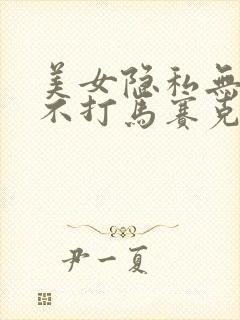 美女隐私無
不打馬賽克
尹一夏